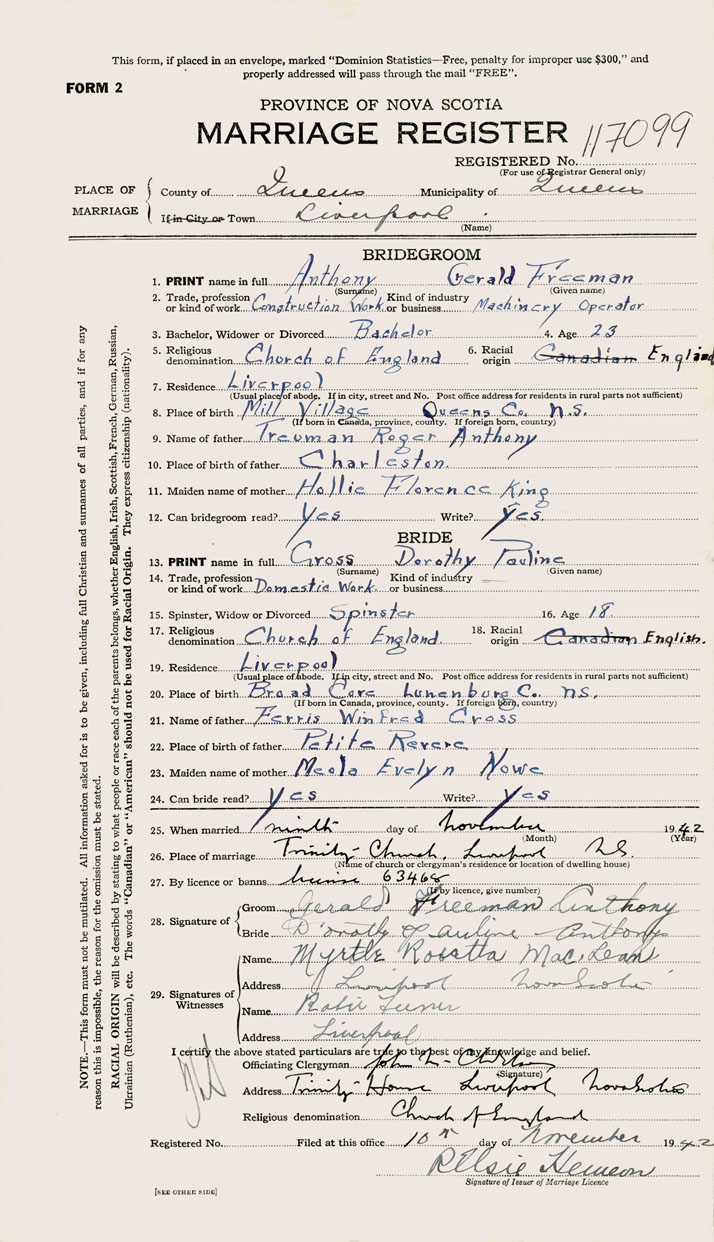 This form, if placed in an envelope, marked "Dominion Statistics—Free, penalty for improper use $300," and
properly addressed will pass through the mail "FREE".
FORM 2
PROVINCE OF NOVA SCOTIA
MARRIAGE REGISTER 117099
REGISTERED No.
(For use of Registrar General only)
PLACE OF MARRIAGE
County of Queens Municipality of Queens
If in City or Town Liverpool
(Name)
BRIDEGROOM
1. PRINT name in full Anthony Gerald Freeman
(Surname) (Given name)
2. Trade, profession or kind of work Construction Work Kind of industry or business Machinery Operator
3. Bachelor, Widower or Divorced Bachelor 4. Age 23
5. Religious denomination Church of England 6. Racial origin Canadian England
7. Residence Liverpool
(Usual place of abode. If in city, street and No. Post office address for residents in rural parts not sufficient)
8. Place of birth Mill Village Queens Co. N.S.
(If born in Canada, province, county. If foreign born, country)
9. Name of father Treuman Roger Anthony
10. Place of birth of father Charleston.
11. Maiden name of mother Hollie Florence King
12. Can bridegroom read? Yes Write? Yes.
BRIDE
13. PRINT name in full Cross Dorothy Pauline
(Surname) (Given name)
14. Trade, profession or kind of work Domestic Work. Kind of industry or business
15. Spinster, Widow or Divorced Spinster 16. Age 18
17. Religious denomination Church of England 18. Racial origin Canadian English.
19. Residence Liverpool
(Usual place of abode. If in city, street and No. Post office address for residents in rural parts not sufficient)
20. Place of birth Broad Cove Lunenburg C. N.S.
(If born in Canada, province, county. If foreign born, country)
21. Name of father Ferris Winfred Cross
22. Place of birth of father Petite Revere
23. Maiden name of mother Meola Evelyn Nowe
24. Can bride read? Yes Write? Yes
25. When married ninth day of November 1942
(Month) (Year)
26. Place of marriage Trinity Church, Liverpool N.S.
(Name of church or clergyman's residence or location of dwelling house)
27. By licence or banns license 63468
(If by licence, give number)
28. Signature of
Groom Gerald Freeman Anthony
Bride Dorothy Pauline Anthony
29. Signatures of Witnesses
Name Myrtle Rosetta MacLean
Address Liverpool Nova Scotia
Name
Address Liverpool
I certify the above stated particulars are true to the best of my knowledge and belief.
Officiating Clergyman John L.
(Signature)
Address Trinity House Liverpool Nova Scotia
Religious denomination Church of England
Registered No. Filed at this office 10th day of November 1942
Elsie
Signature of Issuer of Marriage Licence
[SEE OTHER SIDE]
NOTE.—This form must not be mutilated. All information asked for is to be given, including full Christian and surnames of all parties, and if for any
reason this is impossible, the reason for the omission must be stated.
RACIAL ORIGIN will be described by stating to what people or race each of the parents belongs, whether English, Irish, Scottish, French, German, Russian,
Ukrainian (Ruthenian), etc. The words "Canadian" or "American" should not be used for Racial Origin. They express citizenship (nationality).